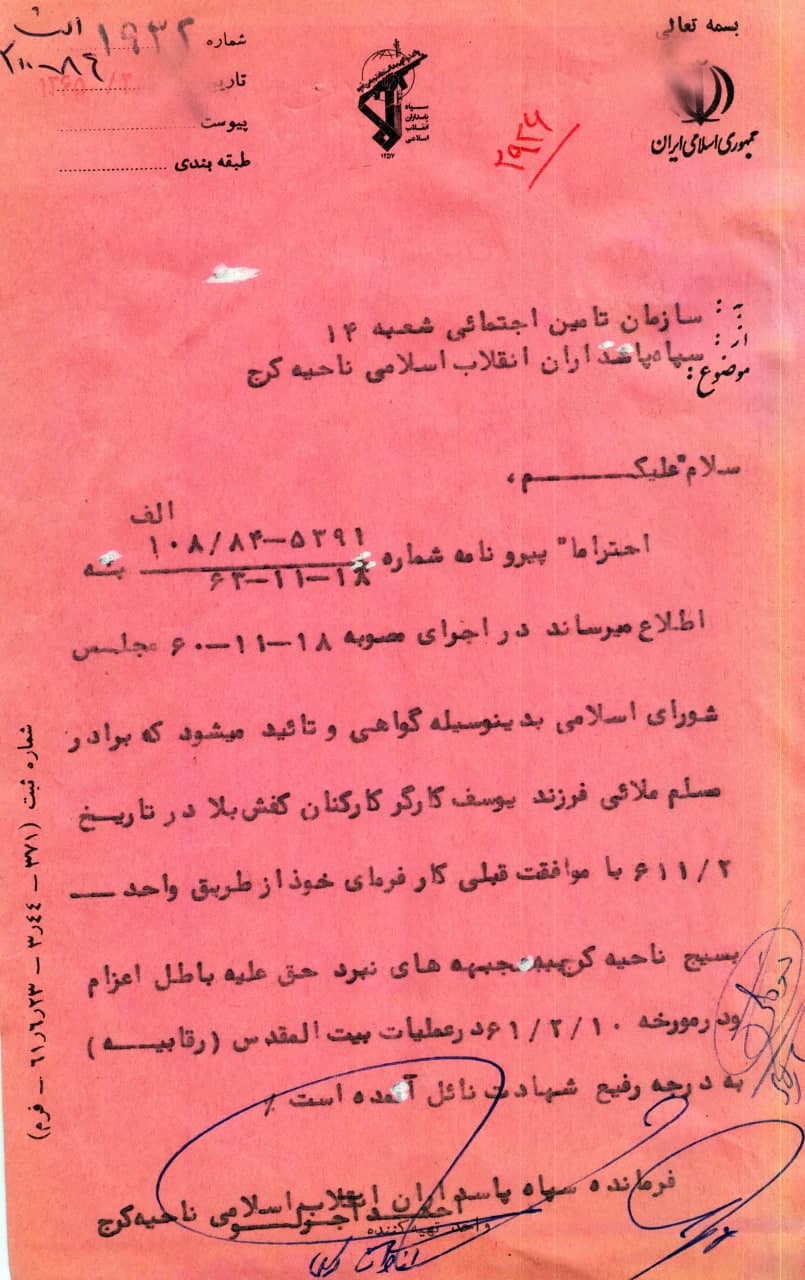 بسمه تعالی
جمهوری اسلامی ایران
سپاه
پاسداران
انقلاب
اسلامی
۱۳۵۷
شماره ۱۹۳۲ الف
۸۴
تاریخ
پیوست
طبقه بندی
۲۹۲۶
به: سازمان تامین اجتمائی شعبه ۱۴
از: سپاه پاسداران انقلاب اسلامی ناحیه کرج
موضوع:
سلام" علیکم،
الف
احتراما" پیرو نامه شماره ۱۰۸/۸۴-۵۳۹۱ به
۶۳-۱۱-۱۸
اطلاع میرساند در اجرای مصوبه ۱۸-۱۱-۶۰ مجلس
شورای اسلامی بدینوسیله گواهی و تائید میشود که برادر
مسلم ملائی فرزند یوسف کارگر کارکنان کفش بلا در تاریخ
۶۱۱/۲ با موافقت قبلی کار فرمای خوذ از طریق واحد
بسیج ناحیه کرج به جبهه های نبرد حق علیه باطل اعزام
ودر مورخه ۶۱/۲/۱۰ در عملیات بیت المقدس (رقابیه)
به درجه رفیع شهادت نائل آمده است ٪
فرمانده سپاه پاسداران انقلاب اسلامی ناحیه کرج
واحد تهیه کننده
شماره ثبت (۳۷۱ – ۳٫۴۴ – ۶۱٫۶٫۲۳ – فرم)